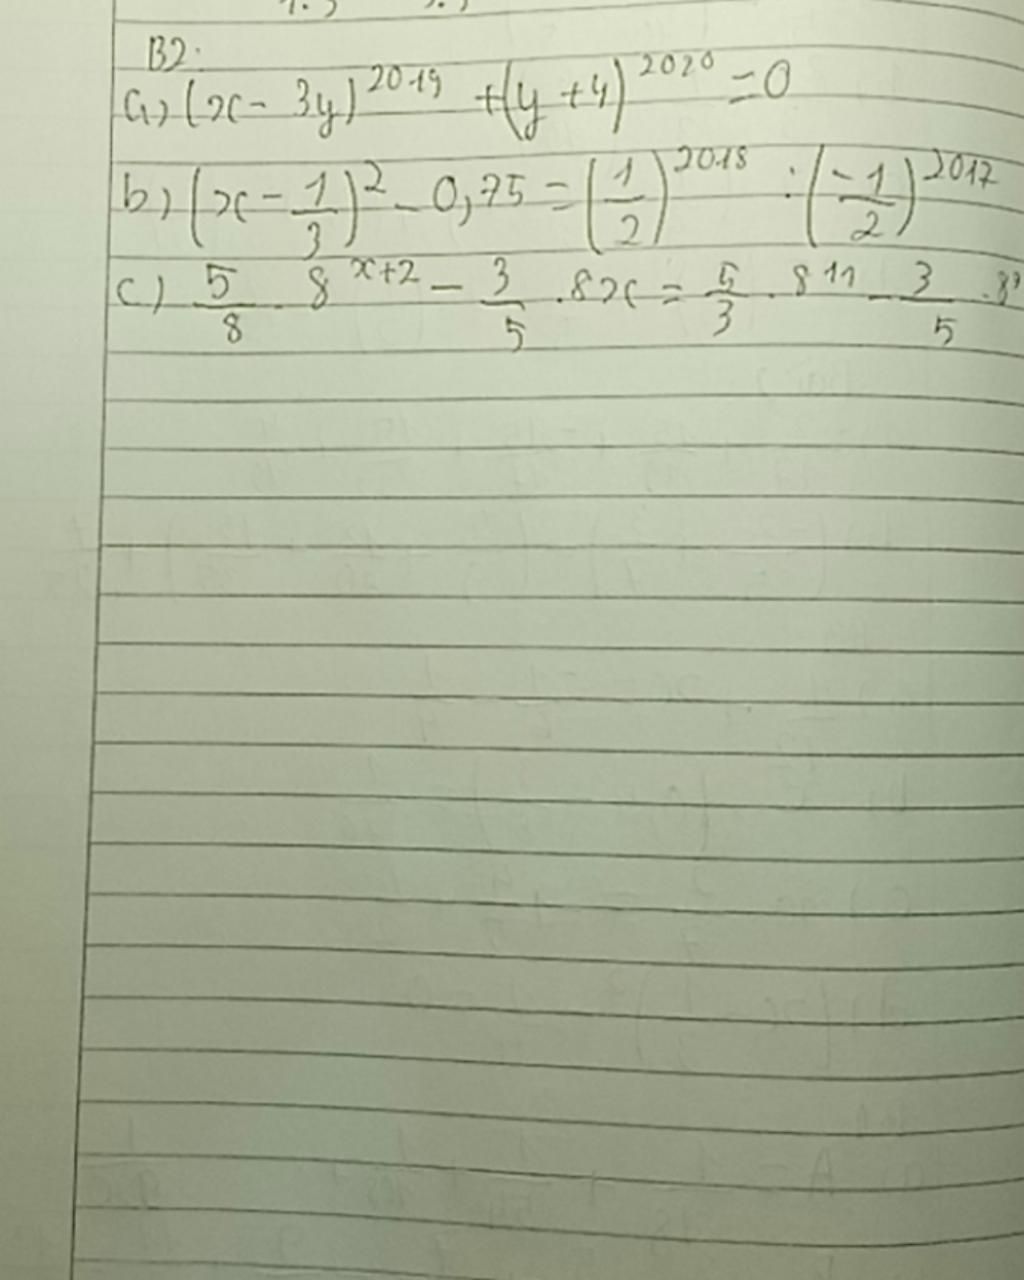 B2:
a) (x - 3y)^2019 + (y + 4)^2020 = 0
b) (x - 1/3)^2 - 0,75 = (1/2)^2018 : (-1/2)^2017
c) 5/8 . 8^x+2 - 3/5 . 8x = 5/3 . 8^11 - 3/5 . 8